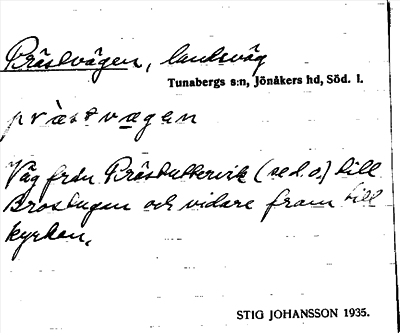 Prästvägen, landsväg
Tunabergs s:n, Jönåkers hd, Söd. l.
pràstvægen
Väg från Prästullervik (se d. o.) till
Brostugan och vidare fram till
kyrkan.
STIG JOHANSSON 1935.